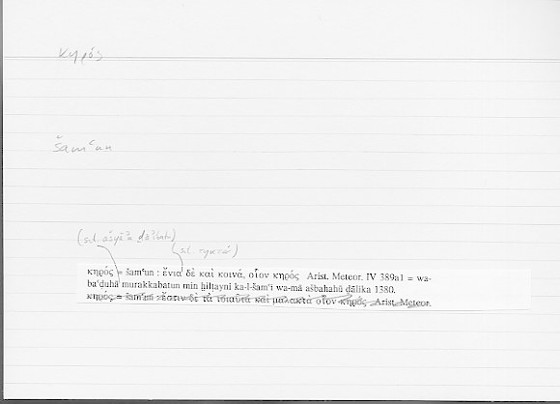 κηρός
šamʿun
(s.l. ašyāʾ ḏāʾibatu)
(s.l. τηκτά)
κηρός = šamʿun : ἔνια δὲ καὶ κοινά, οἷον κηρός Arist. Meteor. IV 389a1 = wa-
baʿḍuhā murakkabatun min ḫilṭayni ka-l-šamʿi wa-mā ašbahahū ḏālika 1380.
κηρός = šamʿun : ἔστιν δὲ τὰ τοιαῦτα καὶ μαλακτὰ οἷον κηρός Arist. Meteor.